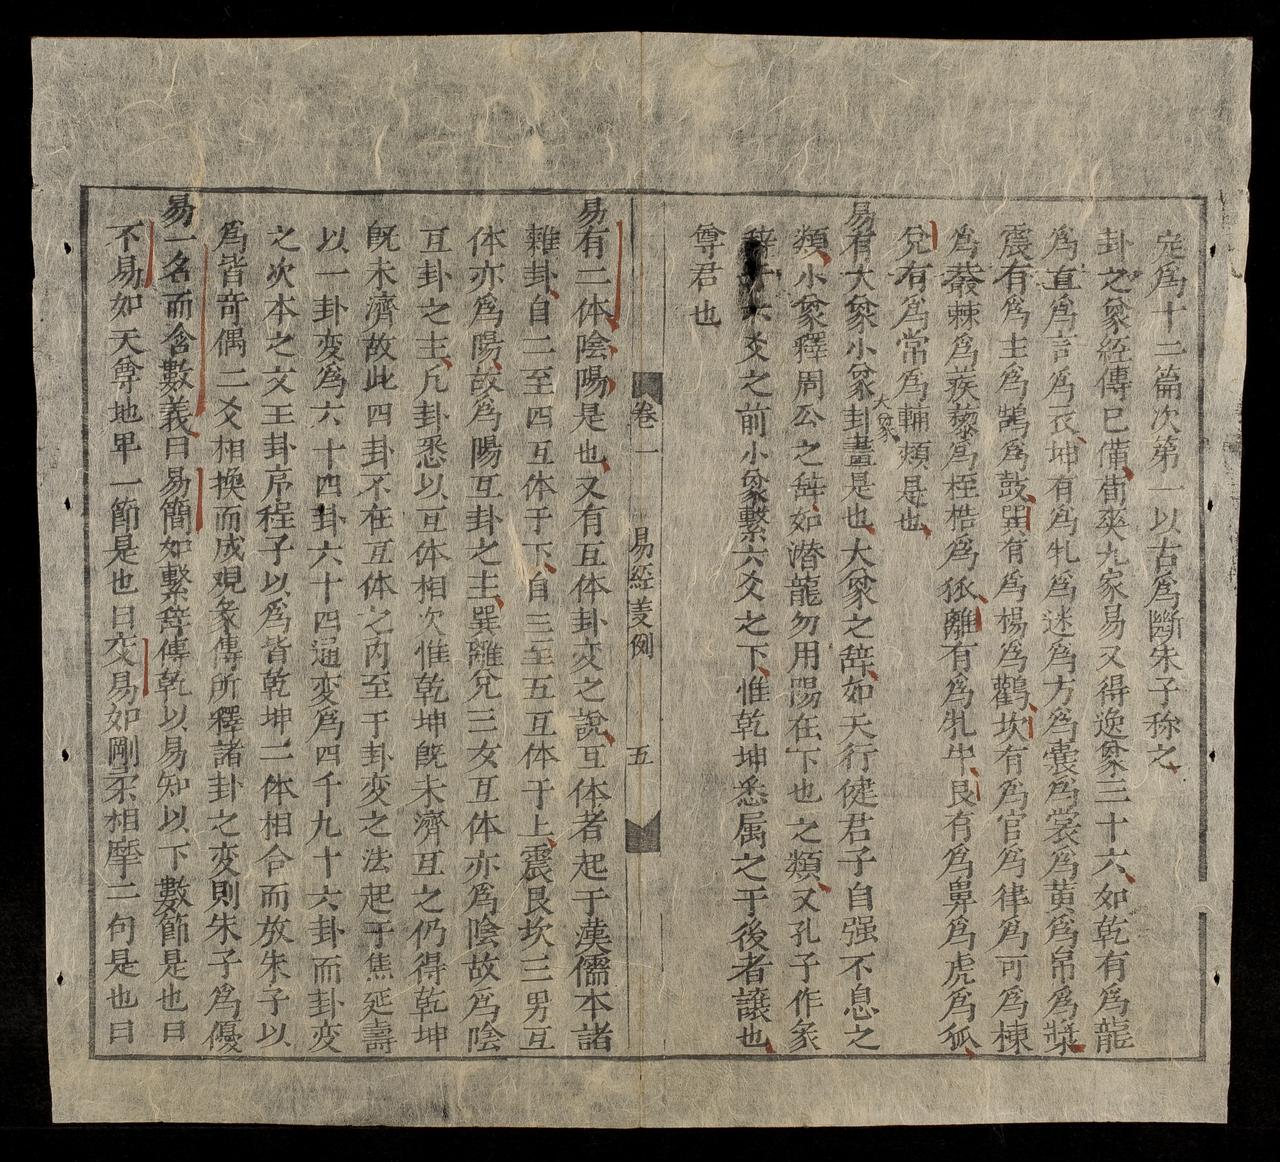 定爲十二篇次第一以古爲斷朱子称之
卦之象經傳已備荀爽九家易又得逸象三十六如乾有爲龍
爲直爲言爲衣坤有爲牝爲迷爲方爲囊爲裳爲黄爲帛爲漿
震有爲主爲鵠爲鼓巽有爲楊爲鸛坎有爲宮爲律爲可爲棟
爲叢棘爲蒺藜爲桎梏爲狐離有爲牝牛艮有爲鼻爲虎爲狐
兌有爲常爲輔頬是也
易有大象小象卦畫是也大象之辞如天行健君子自强不息之
大象
類小象釋周公之辞如潜龍勿用陽在下也之類又孔子作象
辞于六爻之前小象繫六爻之下惟乾坤悉属之于後者讓也
尊君也
卷一 易經羙例 五
易有二体陰陽是也又有互体卦变之說互体者起于漢儒本諸
雜卦自二至四互体于下自三至五互体于上震艮坎三男互
体亦爲陽故爲陽互卦之主巽離兌三女互体亦爲陰故爲陰
互卦之主凡卦悉以互体相次惟乾坤旣未濟互之仍得乾坤
旣未濟故此四卦不在互体之内至于卦变之法起于焦延壽
以一卦变爲六十四卦六十四通变爲四千九十六卦而卦变
之次本之文王卦序程子以爲皆乾坤二体相合而放朱子以
爲皆奇偶二爻相換而成观彖傳所釋諸卦之变則朱子爲優
易一名而含數義曰易簡如繫辞傳乾以易知以下數節是也曰
不易如天尊地卑一節是也曰交易如剛柔相摩二句是也曰